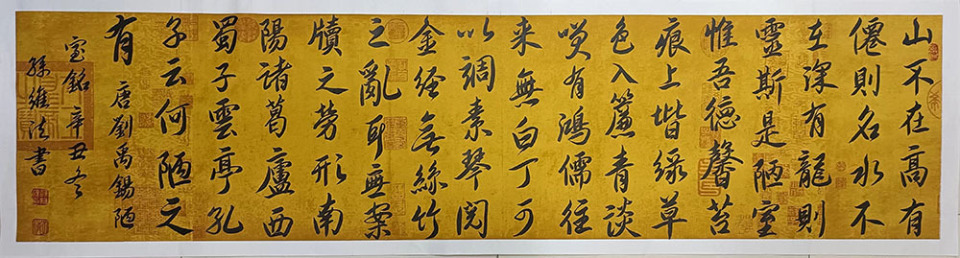 山不在高有
僊則名水不
在深有龍則
靈斯是陋室
惟吾德馨苔
痕上堦緑草
色入簾青談
咲有鴻儒往
来無白丁可
以調素琴閱
金經無絲竹
之亂耳無案
牘之勞形南
陽諸葛廬西
蜀子雲亭孔
子云何陋之
有 唐劉禹錫陋
室銘辛丑冬
孫維法書